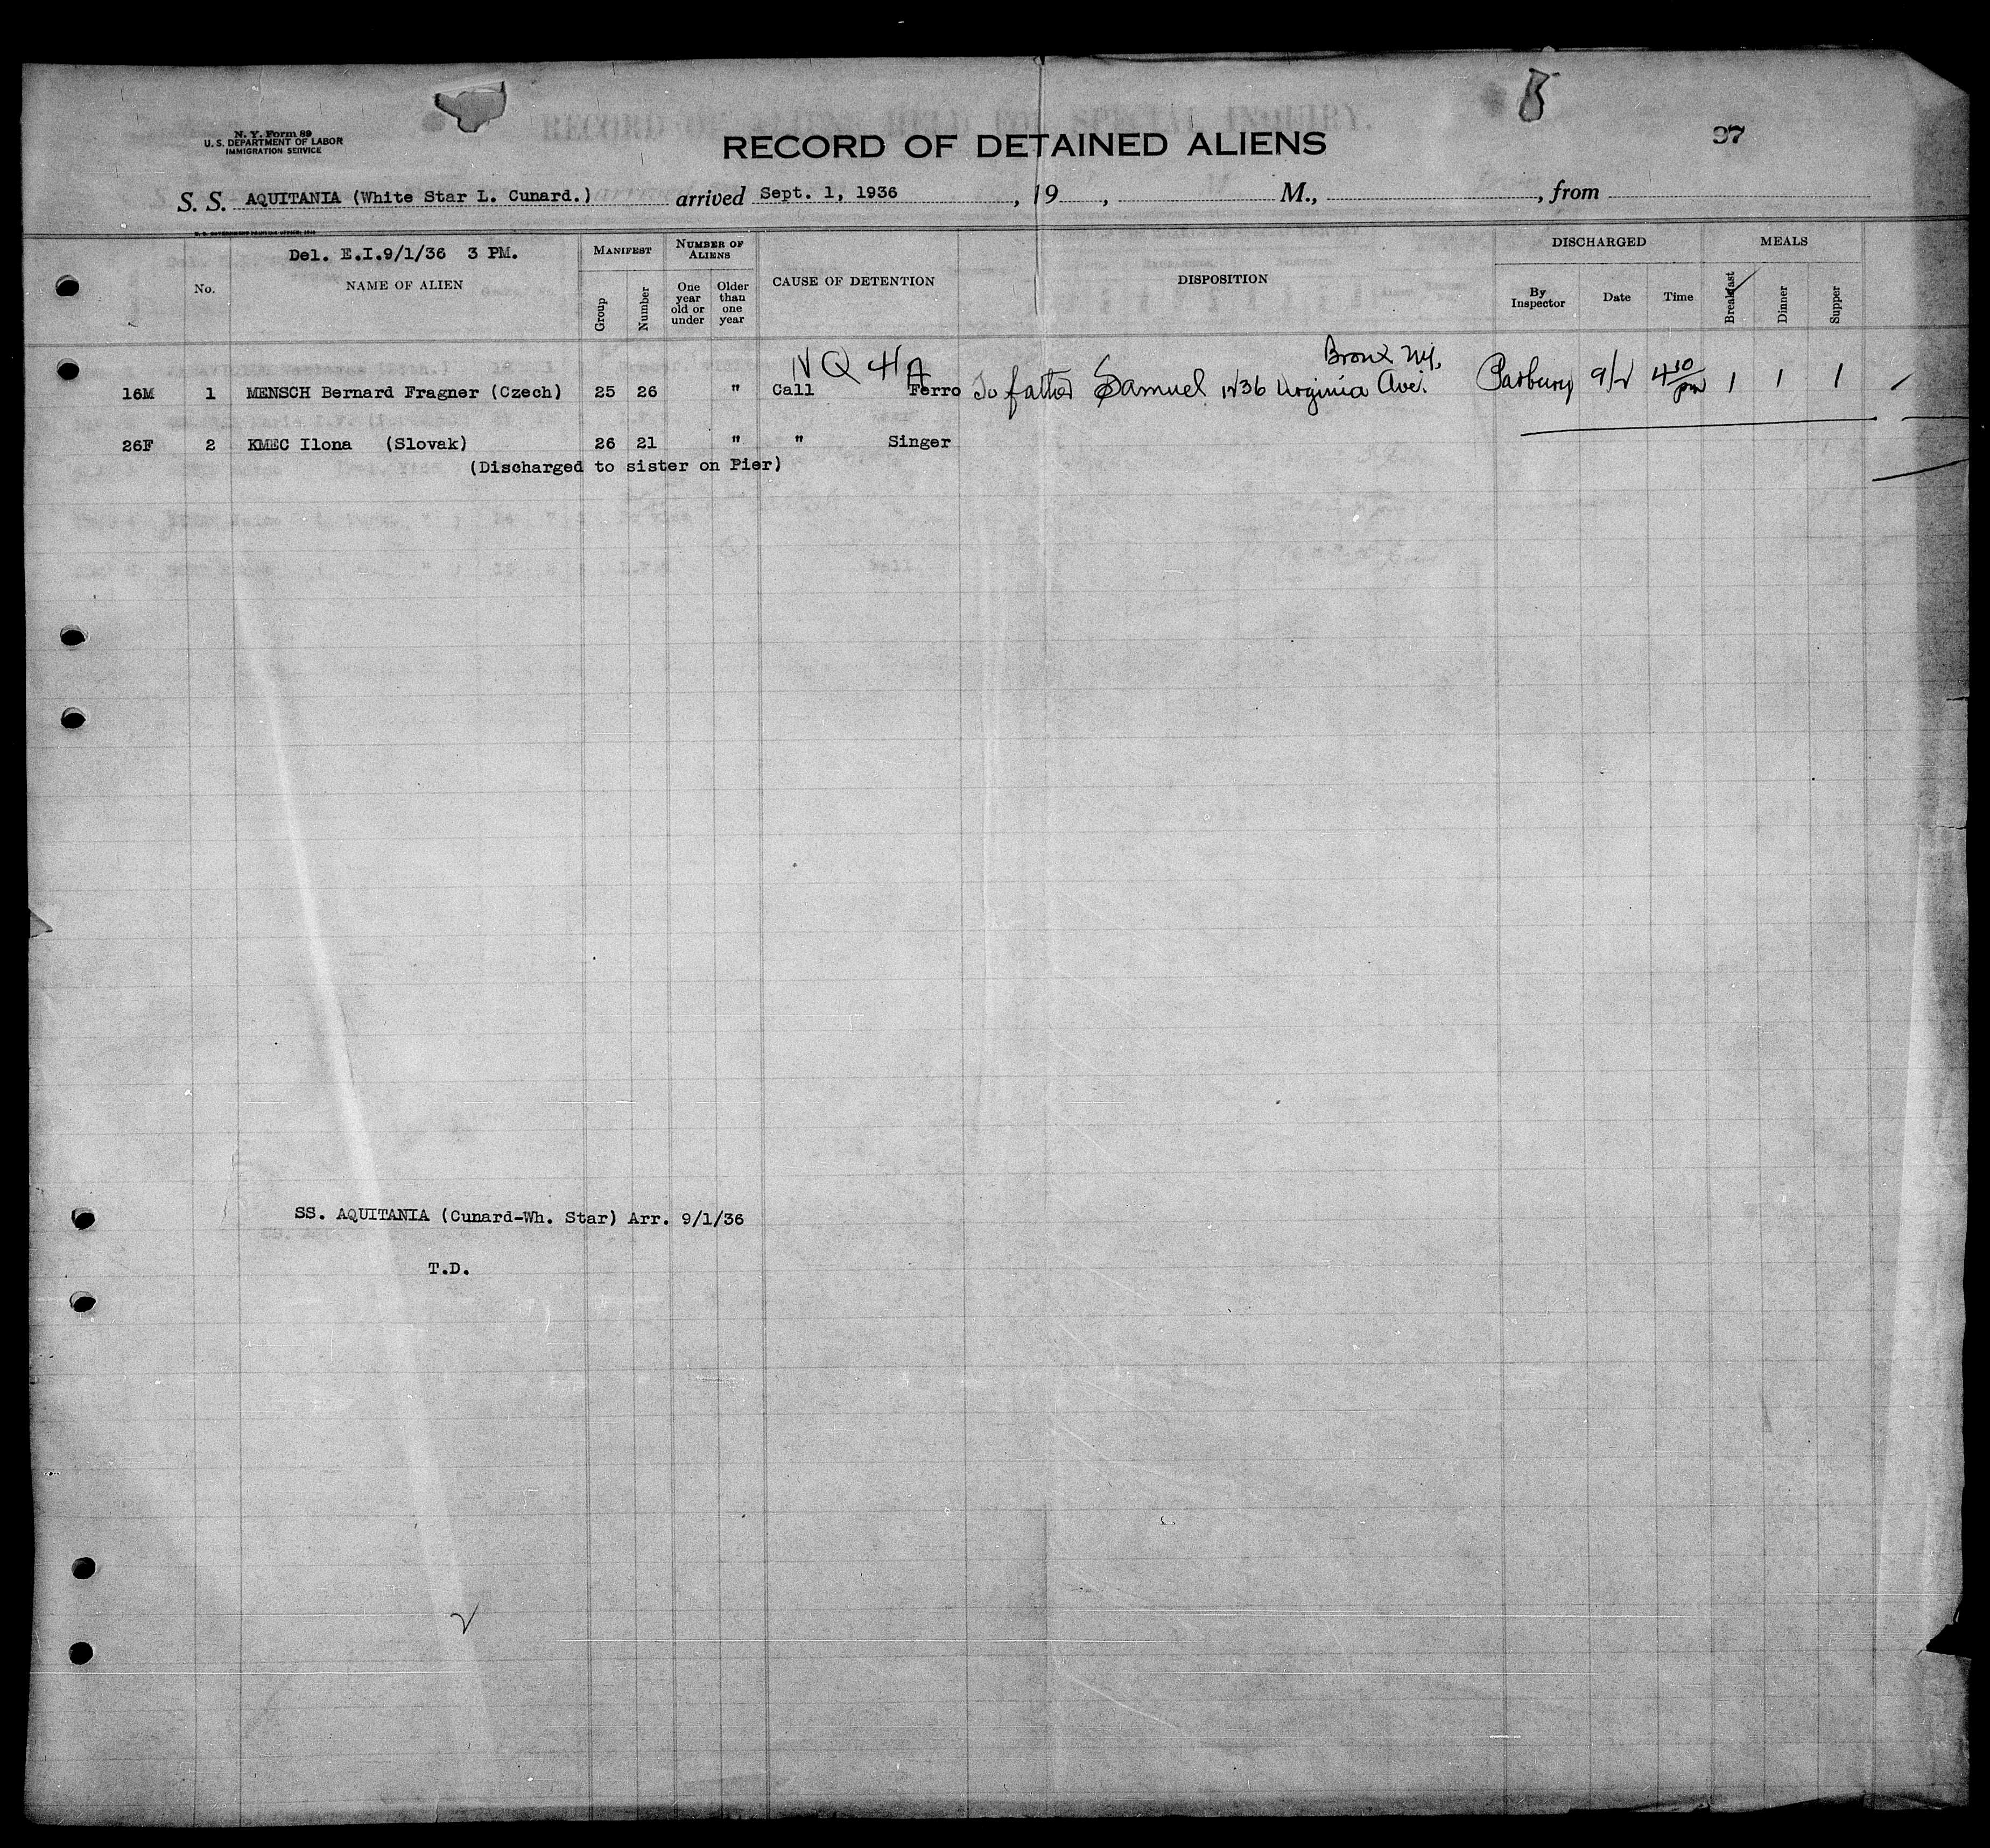 N. Y. Form 89
U. S. DEPARTMENT OF LABOR
IMMIGRATION SERVICE
RECORD OF DETAINED ALIENS
97
S. S. AQUITANIA (White Star L. Cunard.) arrived Sept. 1, 1936, 19 , M., , from
Del. E.I.9/1/36 3 PM.
No. NAME OF ALIEN
MANIFEST Group Number
NUMBER OF ALIENS One year old or under Older than one year
CAUSE OF DETENTION
DISPOSITION
DISCHARGED By Inspector Date Time
MEALS Breakfast Dinner Supper
NQ HA Bronx NY.
16M 1 MENSCH Bernard Fragner (Czech) 25 26 " Call Ferro To father Samuel 1236 Virginia Ave. 9/2 4 10/pm 1 1 1
26F 2 KMEC Ilona (Slovak) 26 21 " " Singer
(Discharged to sister on Pier)
SS. AQUITANIA (Cunard-Wh. Star) Arr. 9/1/36
T.D.